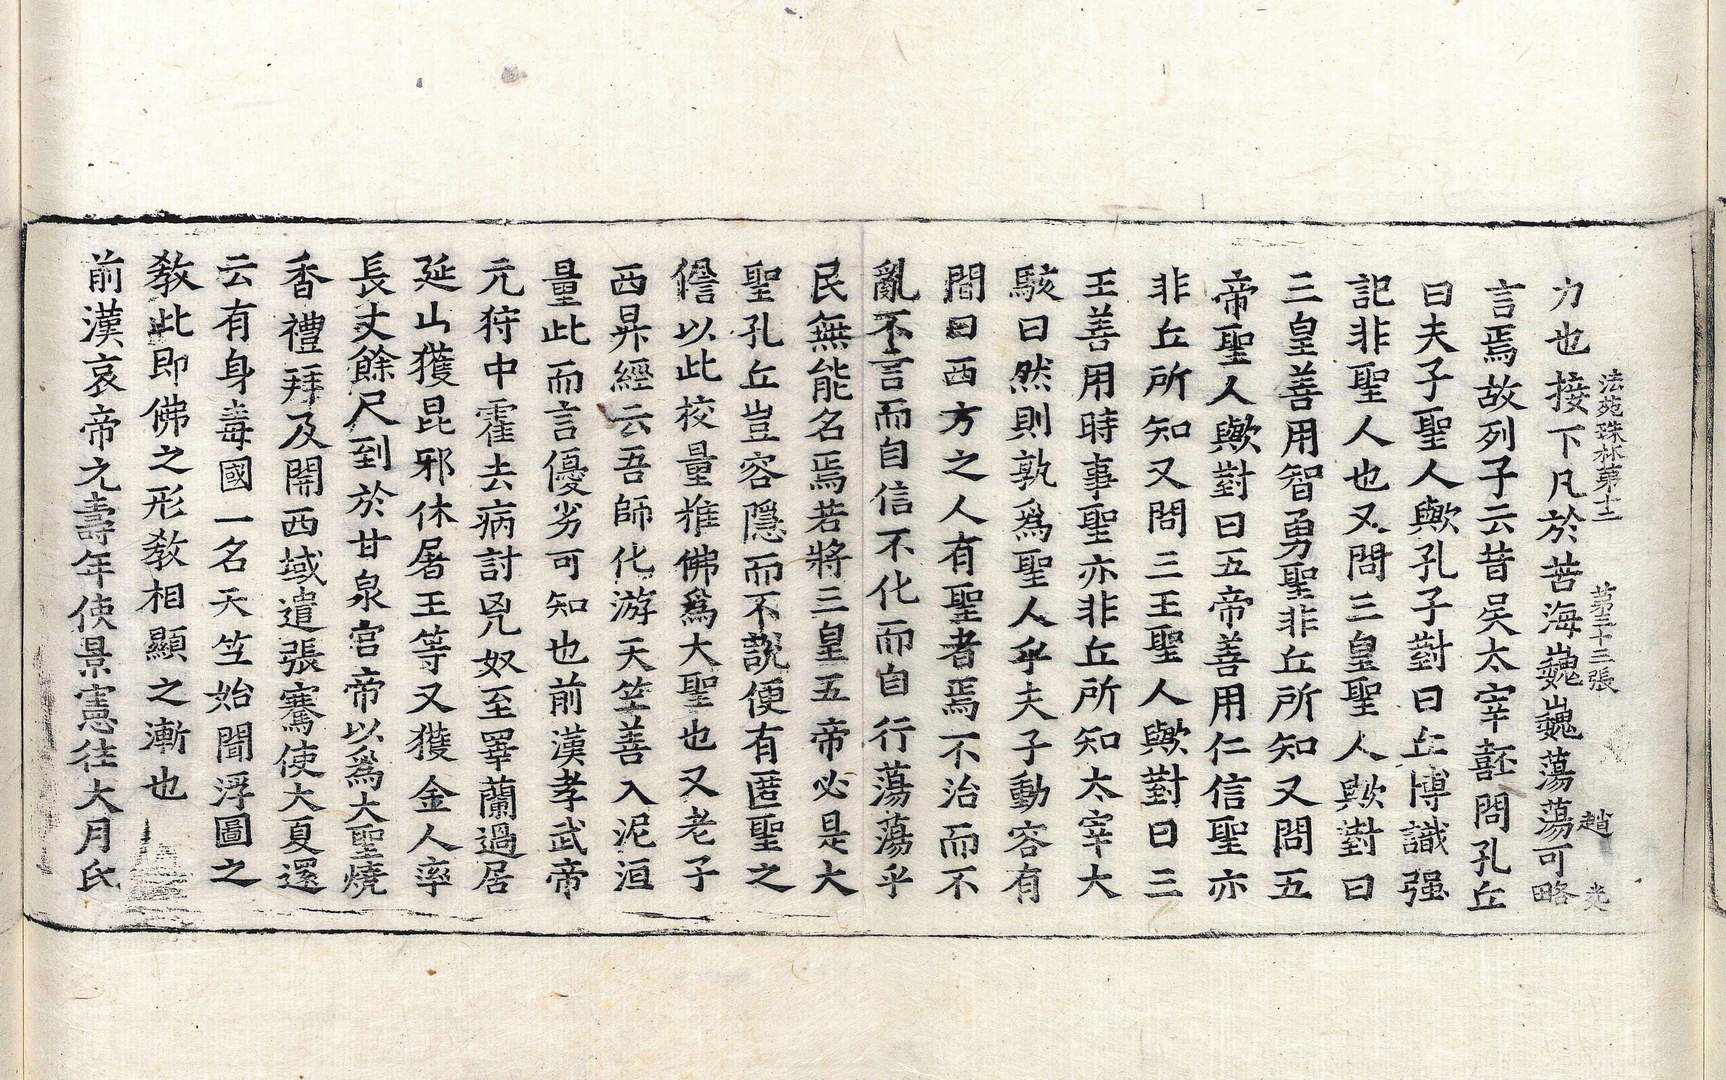 法苑珠林第十二　第三十三張　趙
力也接下凡於苦海巍巍蕩蕩可略
言焉故列子云昔吴太宰嚭問孔丘
曰夫子聖人歟孔子對曰丘博識强
記非聖人也又問三皇聖人歟對曰
三皇善用智勇聖非丘所知又問五
帝聖人歟對曰五帝善用仁信聖亦
非丘所知又問三王聖人歟對曰三
王善用時事聖亦非丘所知太宰大
駭曰然則孰爲聖人乎夫子動容有
間曰西方之人有聖者焉不治而不
亂不言而自信不化而自行蕩蕩乎
民無能名焉若將三皇五帝必是大
聖孔丘豈容隱而不說便有匿聖之
僭以此校量推佛爲大聖也又老子
西昇經云吾師化游天竺善入泥洹
量此而言優劣可知也前漢孝武帝
元狩中霍去病討兇奴至睪蘭過居
延山獲昆邪休屠王等又獲金人率
長丈餘尺到於甘泉宫帝以爲大聖燒
香禮拜及開西域遣張騫使大夏還
云有身毒國一名天竺始聞浮圖之
教此即佛之形教相顯之漸也
前漢哀帝元壽年使景憲往大月氏